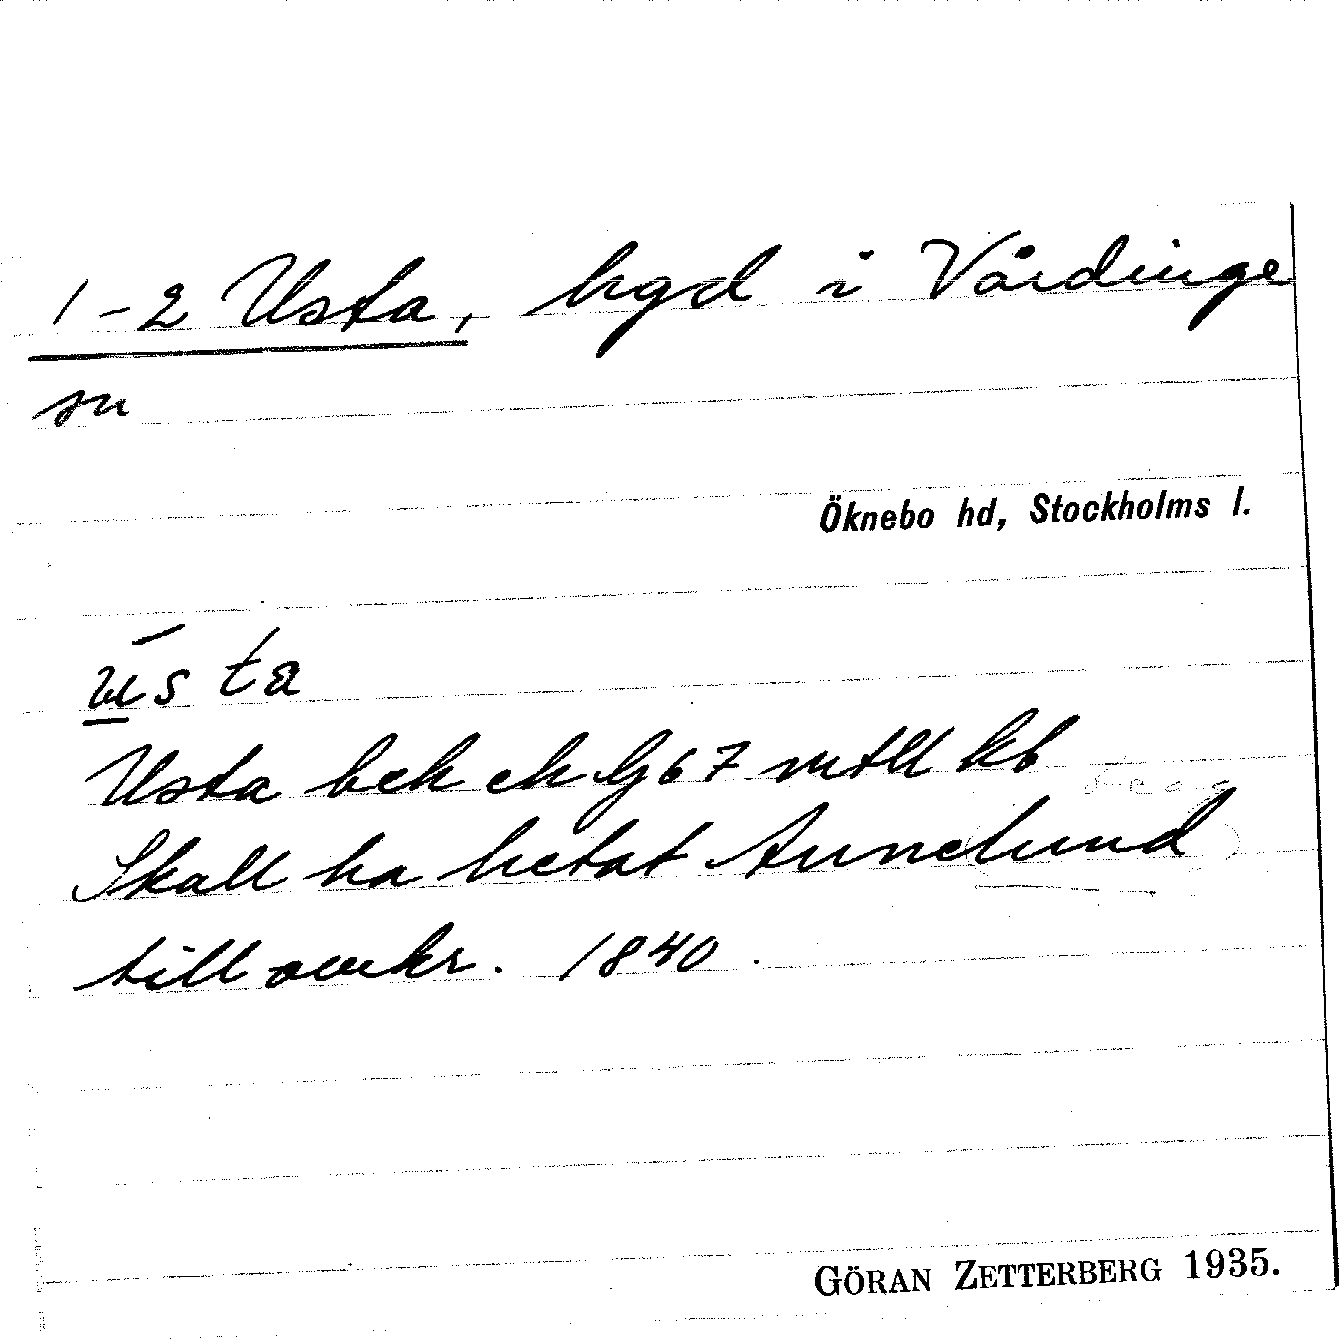 1-2 Usta, hgd i Vårdinge
sn
Öknebo hd, Stockholms l.
ústa
Usta bek ek Gb 7 mtll kb
Skall ha hetat Annelund
till omkr. 1840.
GÖRAN ZETTERBERG 1935.